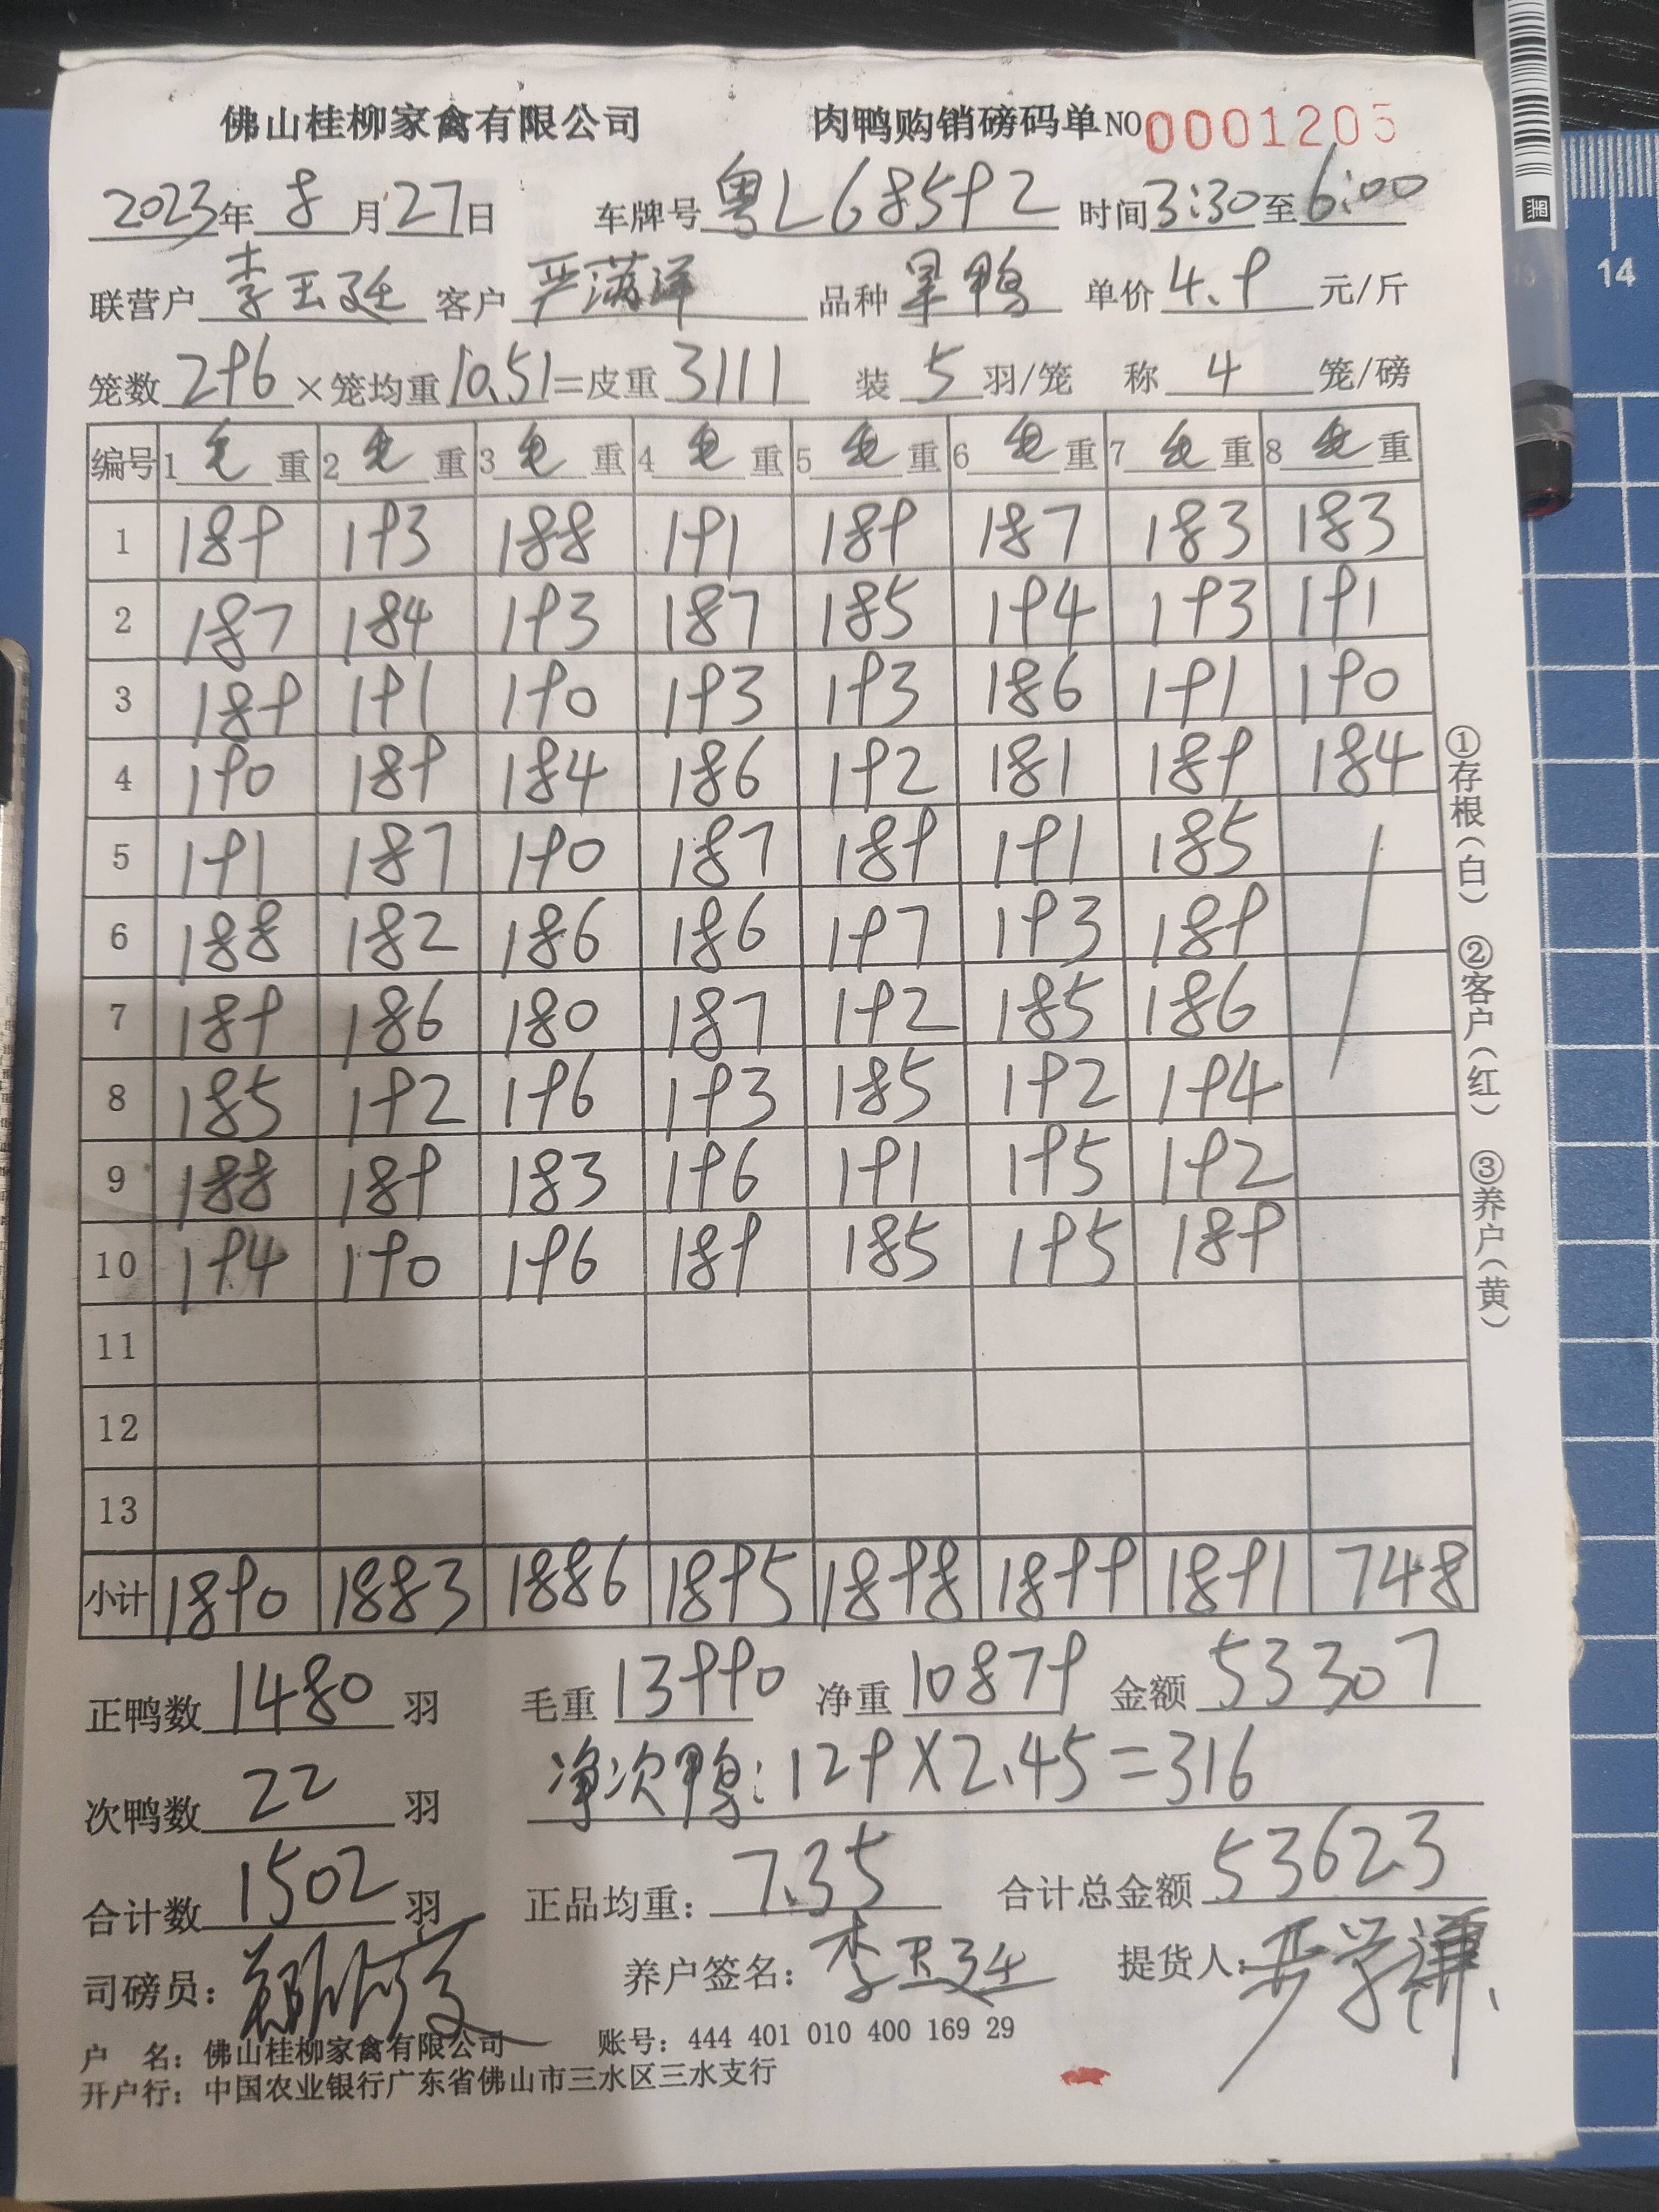 佛山桂柳家禽有限公司 肉鸭购销磅码单NO 0001205
2023年 8 月27日 车牌号 粤L68592 时间3:30至6:00
联营户 李玉廷 客户 严满洋 品种 旱鸭 单价 4.9 元/斤
笼数 296 ×笼均重10.51=皮重 3111 装 5 羽/笼 称 4 笼/磅
编号 1毛重 2毛重 3毛重 4毛重 5毛重 6毛重 7毛重 8毛重
1 189 193 188 191 189 187 183 183
2 187 184 193 187 185 194 193 191
3 189 191 190 193 193 186 191 190
4 190 189 184 186 192 181 189 184
5 191 187 190 187 189 191 185
6 188 182 186 186 197 193 189
7 189 186 180 187 192 185 186
8 185 192 196 193 185 192 194
9 188 189 183 196 191 195 192
10 194 190 196 189 185 195 189
11
12
13
小计 1890 1883 1886 1895 1898 1899 1891 748
正鸭数 1480 羽 毛重 13990 净重 10879 金额 53307
次鸭数 22 羽 净次鸭:129×2.45=316
合计数 1502 羽 正品均重: 7.35 合计总金额 53623
司磅员: 养户签名: 李玉廷 提货人:
户 名: 佛山桂柳家禽有限公司 账号: 444 401 010 400 169 29
开户行: 中国农业银行广东省佛山市三水区三水支行
①存根(白) ②客户(红) ③养户(黄)
14